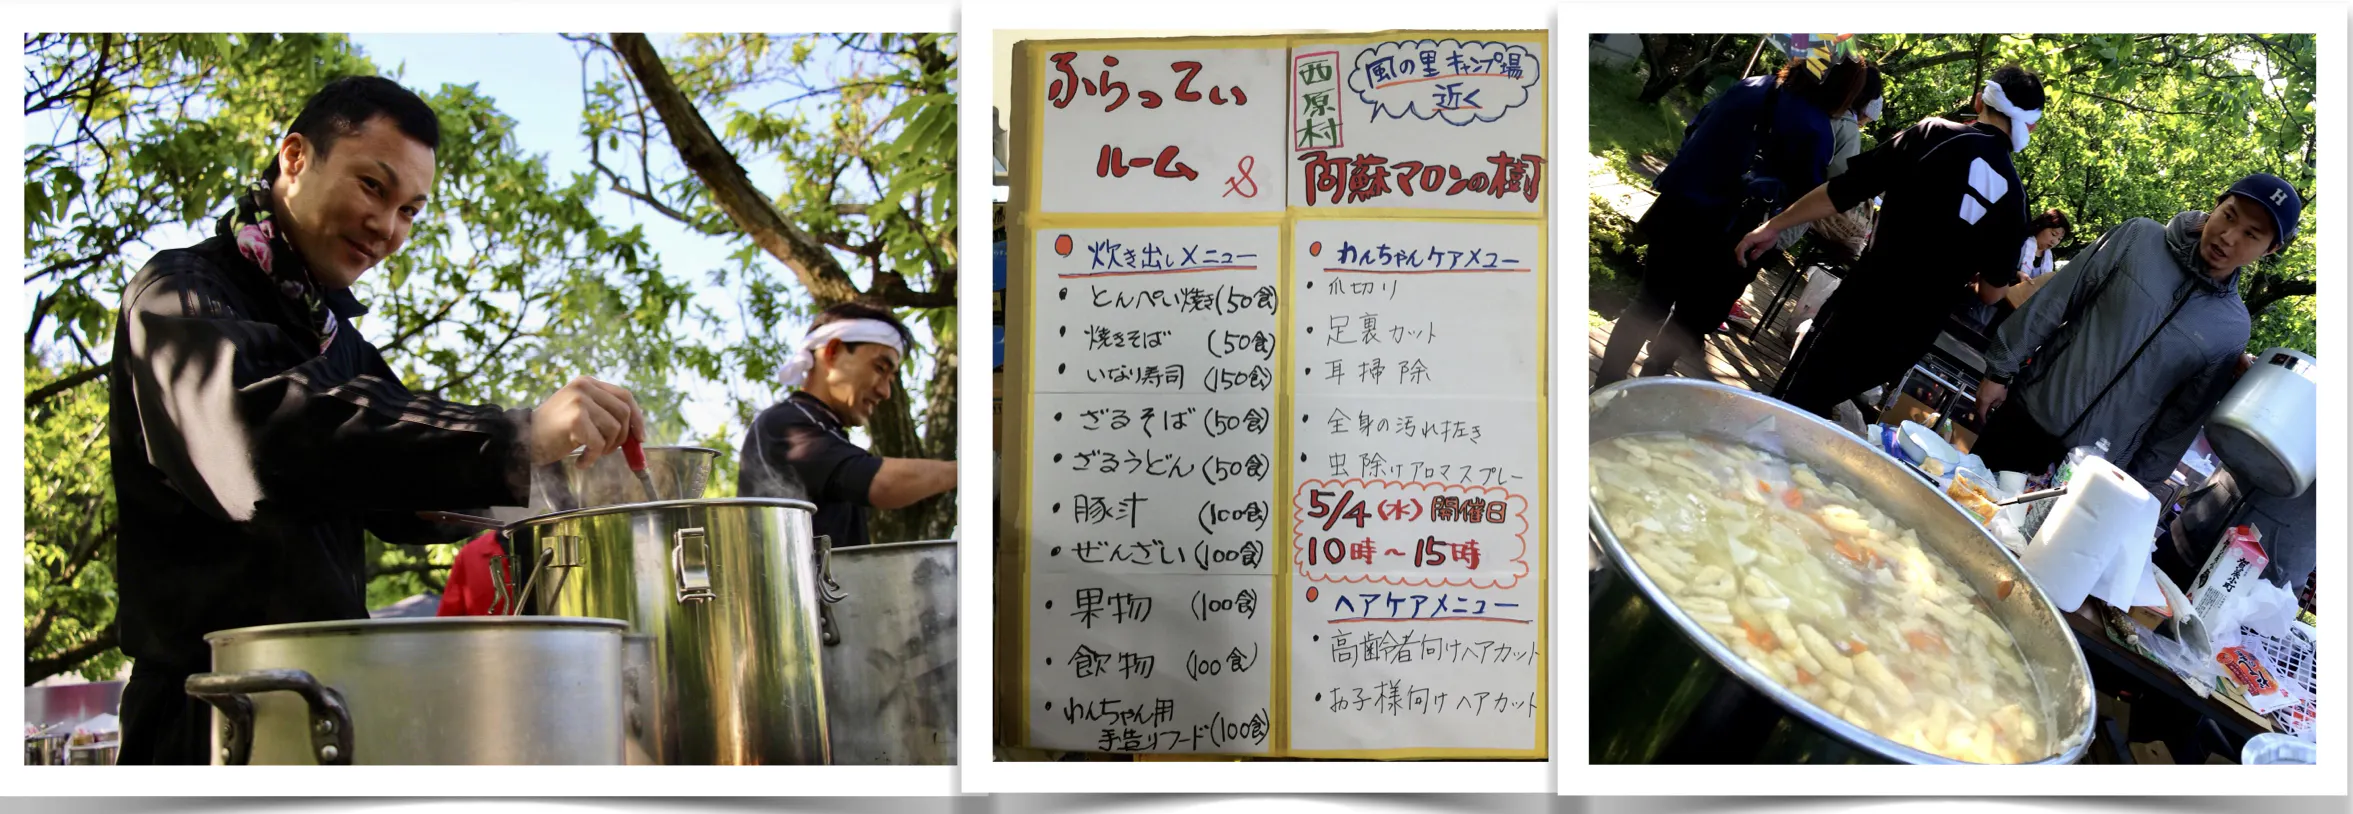 ふらってぃ
ルーム &
西原村
風の里キャンプ場
近く
阿蘇マロンの樹
炊き出しメニュー
・とんぺい焼き(50食)
・焼きそば (50食)
・いなり寿司 (150食)
・ざるそば (50食)
・ざるうどん (50食)
・豚汁 (100食)
・ぜんざい (100食)
・果物 (100食)
・飲物 (100食)
・わんちゃん用
手造りフード(100食)
わんちゃんケアメニュー
・爪切り
・足裏カット
・耳掃除
・全身の汚れ抜き
・虫除けアロマスプレー
5/4(水)開催日
10時～15時
ヘアケアメニュー
・高齢者向けヘアカット
・お子様向けヘアカット
H